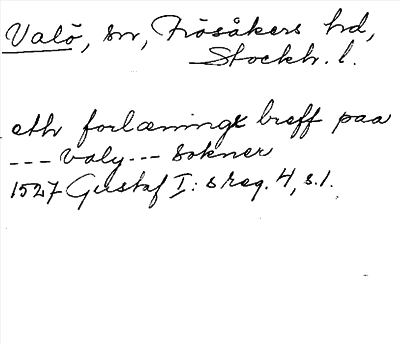 Valö, sn, Frösåkers hd,
Stockh. l.
eth forlæningx breff paa
--- valy --- sokner
1527 Gustaf I:s reg. 4, s. 1.